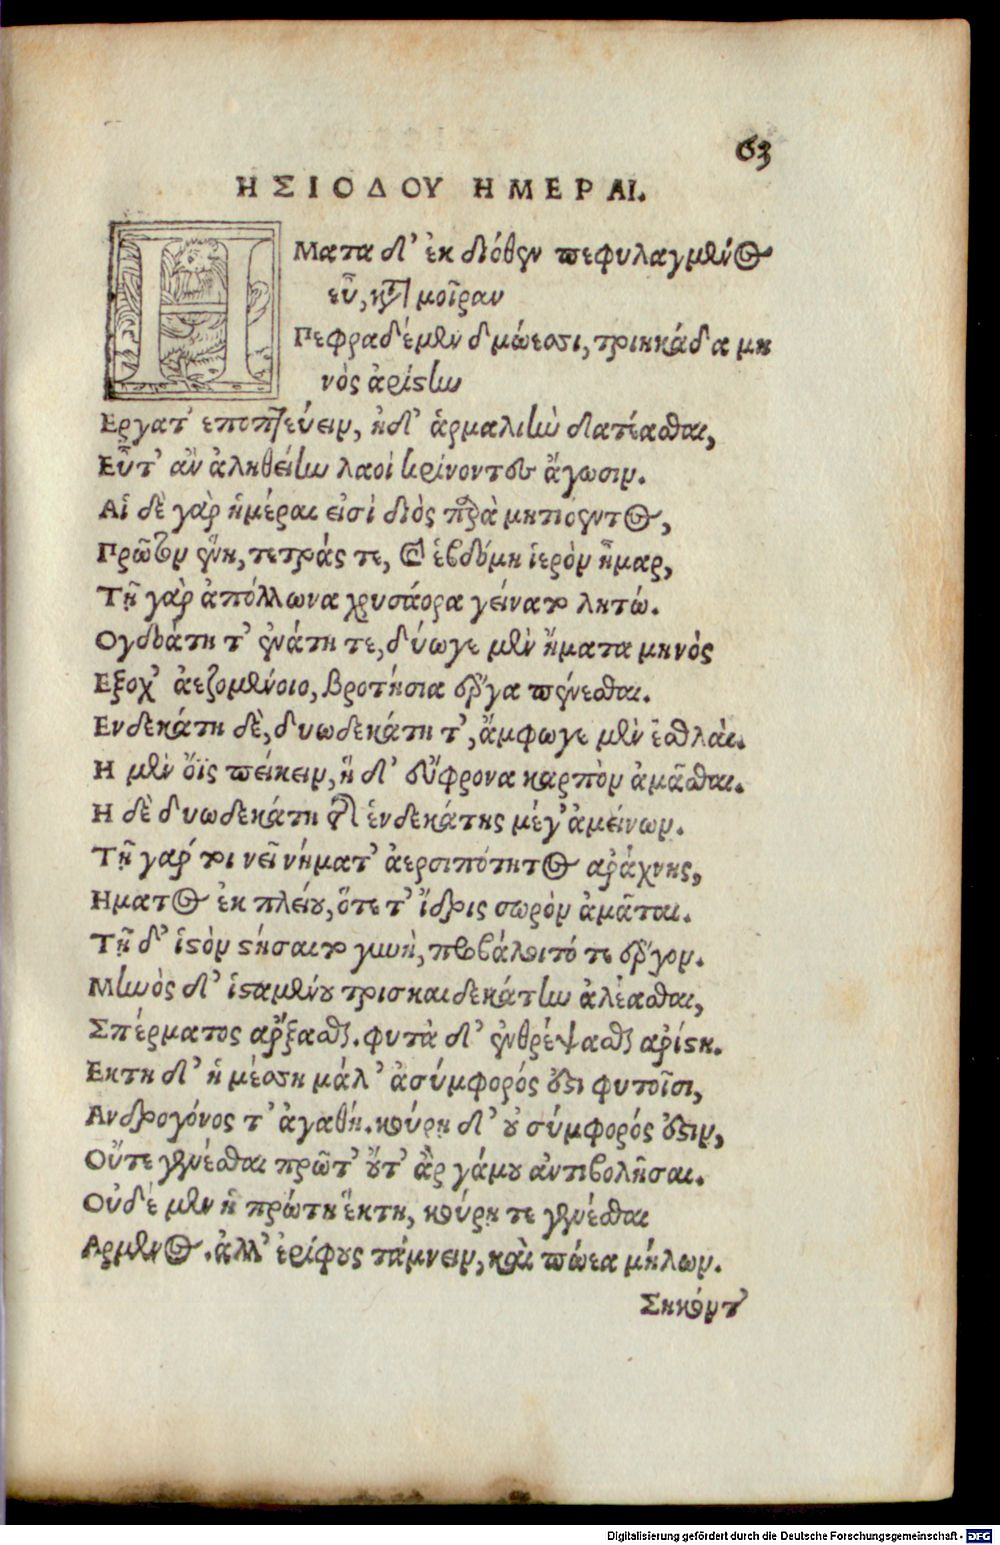 63
ΗΣΙΟΔΟΥ ΗΜΕΡΑΙ.
ΗΜατα δ' ἐκ διόθεν πεφυλαγμένος
εὖ, κατὰ μοῖραν
Πεφραδέμεν δμώεσσι, τριηκάδα μη
νὸς ἀρίστην
Εργατ' εποπτεύειν, ἠδ' ἁρμαλιὴν δατέασθαι,
Εὖτ' ἂν ἀληθείην λαοὶ κρίνοντες ἄγωσιν.
Αἱ δὲ γὰρ ἡμέραι εἰσὶ διὸς παρὰ μητιοεντος,
Πρῶτον ἕνη, τετράς τε, καὶ ἑβδόμη ἱερὸν ἦμαρ,
Τῇ γὰρ ἀπόλλωνα χρυσάορα γείνατο λητώ.
Ογδοάτη τ' ἐνάτη τε, δύωγε μὲν ἤματα μηνὸς
Εξοχ' ἀεξομένοιο, βροτήσια ἔργα πένεσθαι.
Ενδεκάτη δὲ, δυωδεκάτη τ', ἄμφωγε μὲν ἐσθλαὶ.
Η μὲν ὄϊς πείκειν, ἡ δ' εὔφρονα καρπὸν ἀμᾶσθαι.
Η δὲ δυωδεκάτη τῆς ἑνδεκάτης μέγ' ἀμείνων.
Τῇ γάρ τοι νεῖ νήματ' ἀερσιπότητος αράχνης,
Ηματος ἐκ πλείου, ὅτε τ' ἴδρις σωρὸν ἀμᾶται.
Τῇ δ' ἱστὸν στήσαιτο γυνὴ, προβάλοιτό τε ἔργον.
Μηνὸς δ' ἱσταμένου τρισκαιδεκάτην ἀλέασθαι,
Σπέρματος αρξασθαι. φυτὰ δ' ἐνθρέψασθαι αρίστη.
Εκτη δ' ἡ μέσση μάλ' ἀσύμφορός ἐστι φυτοῖσι,
Ανδρογόνος τ' ἀγαθή. κούρῃ δ' οὐ σύμφορός ἐστιν,
Οὔτε γενέσθαι πρῶτ' οὔτ' ἂρ γάμου ἀντιβολῆσαι.
Οὐδὲ μὲν ἡ πρώτη ἕκτη, κούρῃ τε γενέσθαι
Αρμενος. ἀλλ' ἐρίφους τάμνειν, καὶ πώεα μήλων.
Σηκόντ'
Digitalisierung gefördert durch die Deutsche Forschungsgemeinschaft - DFG